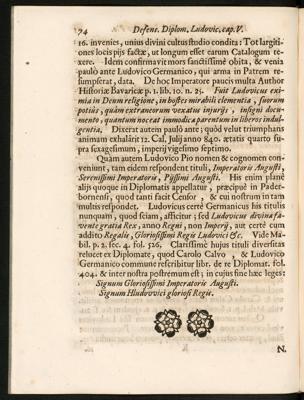 74 Defens. Diplom. Ludovic. cap. V.
16. invenies, unius divini cultus studio condita: Tot largiti-
ones locis pijs factæ, ut longum esset earum Catalogum te-
xere. Idem confirmavit mors sanctissimè obita, & venia
paulò ante Ludovico Germanico, qui arma in Patrem re-
sumpserat, data. De hoc Imperatore paucis multa Author
Historiæ Bavaricæ p. 1. lib. 10. n. 25. Fuit Ludovicus exi-
mia in Deum religione, in hostes mirabili clementia, suorum
potiùs, quàm extraneorum vexatus injurijs, insigni docu-
mento, quantum noceat immodica parentum in liberos indul-
gentia. Dixerat autem paulò ante; quòd velut triumphans
animam exhalârit 12. Cal. Julij anno 840. ætatis quarto su-
pra sexagesimum, imperij vigesimo septimo.
Quàm autem Ludovico Pio nomen & cognomen con-
veniunt, tam eidem respondent tituli, Imperatoris Augusti,
Serenissimi Imperatoris, Pijssimi Augusti. His enim planè
alijs quoque in Diplomatis appellatur, præcipuè in Pader-
bornensi, quod tanti facit Censor, & cui nostrum in tam
multis respondet. Ludovicus certè Germanicus his titulis
nunquam, quod sciam, afficitur; sed Ludovicus divina fa-
vente gratia Rex, anno Regni, non Imperij, aut certè cum
addito Regalis, Gloriosissimi Regis Ludovici &c. Vide Ma-
bil. p. 2. sec. 4. fol. 526. Clarissimè hujus tituli diversitas
relucet ex Diplomate, quod Carolo Calvo, & Ludovico
Germanico commune rescribitur libr. de re Diplomat. fol.
404. & inter nostra postremum est; in cujus fine hæc leges:
Signum Gloriosissimi Imperatoris Augusti.
Signum Hludovvici gloriosi Regis.
N.